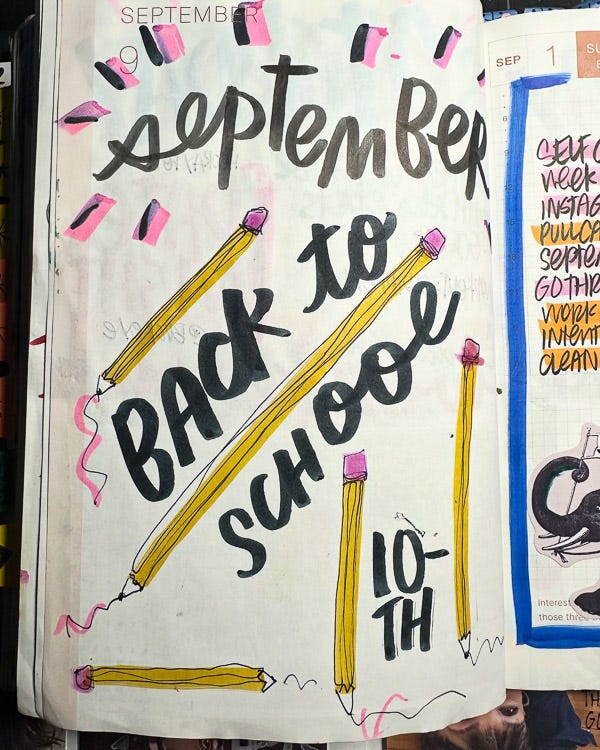 SEPTEMBER
9
september
BACK to
SCHOOL
10-
TH
SEP 1
SELF
WEEK
INSTAG
SEPTE
WORK
INTENT
CLEAN
interest
those three